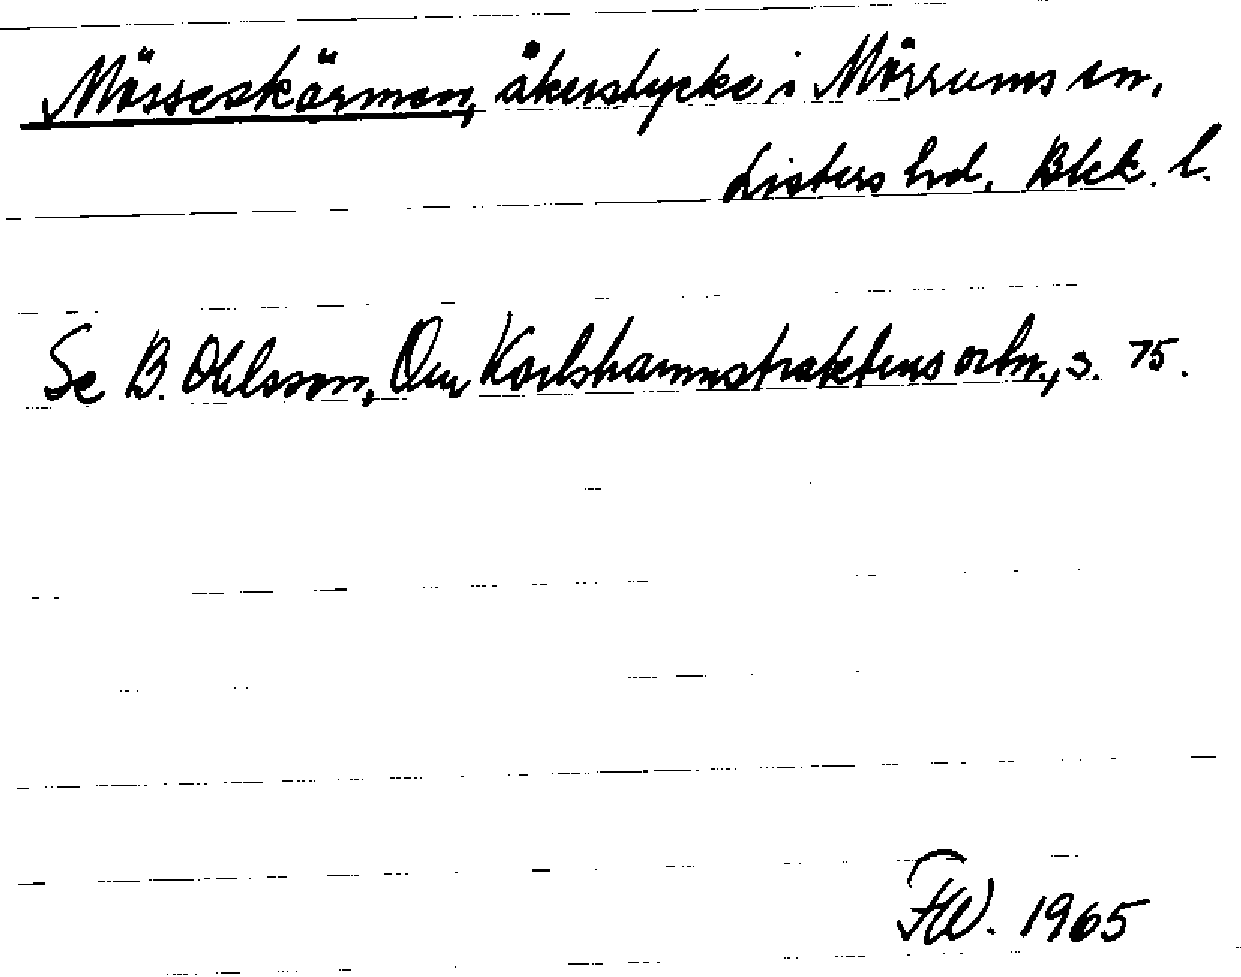 Mösseskärmen, åkerstycke i Mörrums sn.
Listers hd, Blek. l.
Se B. Ohlsson, Om Karlshamnstraktens ortn., s. 75.
FW. 1965